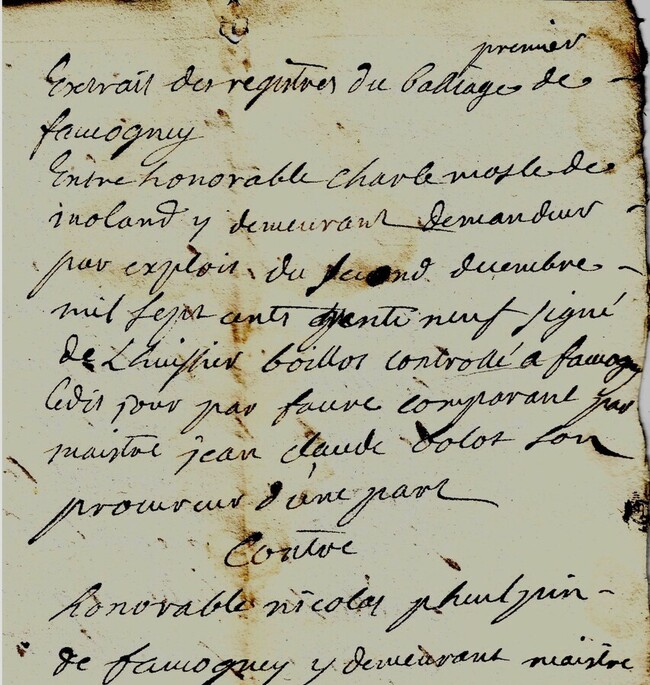 premier
Extrait des registres du balliage de
faucogney
Entre honorable Charle mosle de
y demeurant demandeur
par exploit du second decembre
mil sept cents trente neuf signé
de Lhuissier boillot controllé a faucogn
ledit jour par faivre comparant par
maistre jean claude dolot son
procureur d'une part
Contre
honorable nicolas pheulpin
de faucogney y demeurant maistre